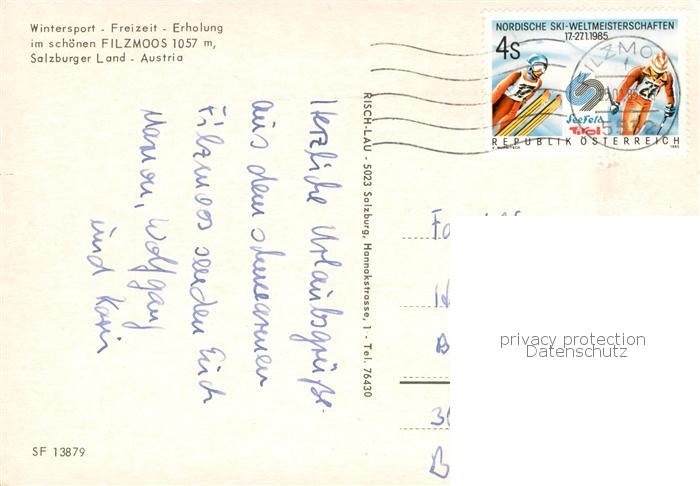 Wintersport - Freizeit - Erholung
im schönen FILZMOOS 1057 m,
Salzburger Land - Austria
NORDISCHE SKI-WELTMEISTERSCHAFTEN
17-27.1.1985
4s
FILZMOOS
Seefeld
Tirol
REPUBLIK ÖSTERREICH
RISCH-LAU - 5023 Salzburg, Hannakstrasse, 1 - Tel. 76430
Herzliche Urlaubsgrüße
aus dem schneearmen
Filzmoos senden Euch
Marion, Wolfgang
und Karin
privacy protection
Datenschutz
SF 13879